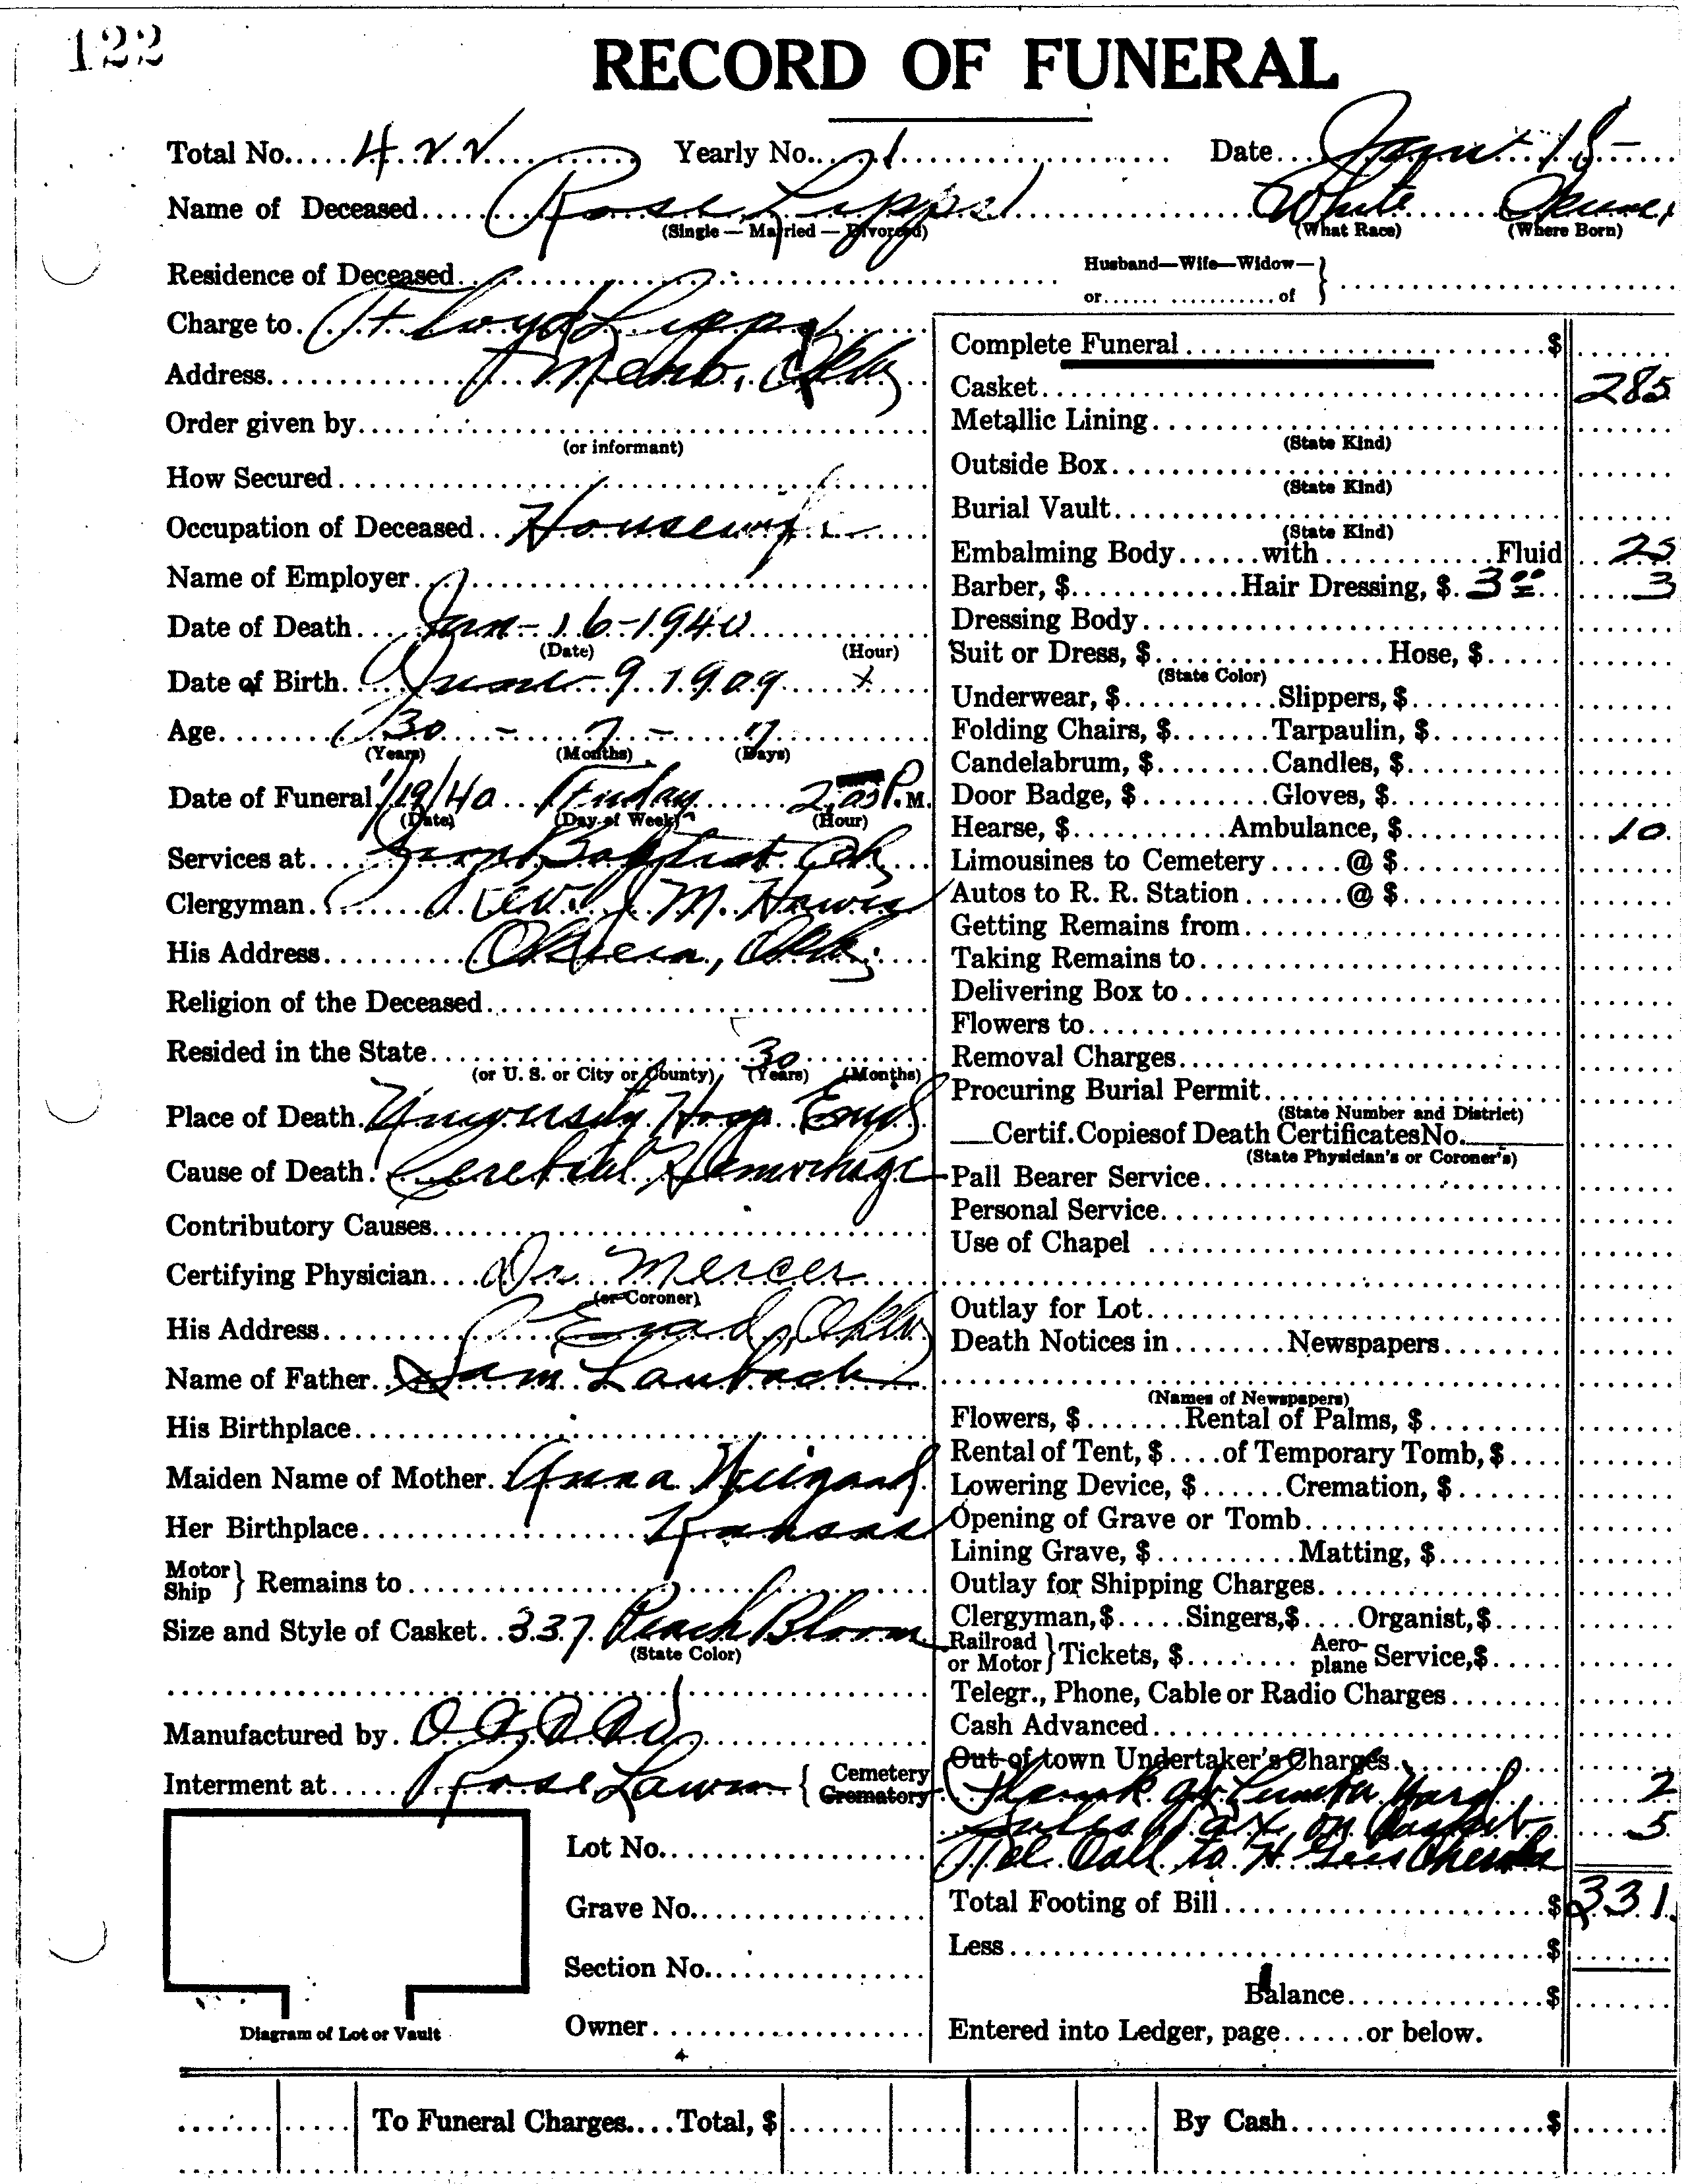 122
RECORD OF FUNERAL
Total No. 422 Yearly No. 1 Date Jan 18-
Name of Deceased Rose Lippel White
(Single — Married — Divorced) (What Race) (Where Born)
Residence of Deceased Husband—Wife—Widow— or of
Charge to Floyd
Address Meno, Okla
Order given by
(or informant)
How Secured
Occupation of Deceased Housewife
Name of Employer
Date of Death Jan-16-1940
(Date) (Hour)
Date of Birth June-9 1909 x
Age 30 - 7 - 7
(Years) (Months) (Days)
Date of Funeral 1/19/40 Friday 2:00 P. M.
(Date) (Day of Week) (Hour)
Services at Baptist Ch
Clergyman Rev. J M.
His Address Okla
Religion of the Deceased
Resided in the State 30
(or U. S. or City or County) (Years) (Months)
Place of Death University Hosp Enid
Cause of Death Cerebral Hemorhage
Contributory Causes
Certifying Physician Dr. Mercer
(or Coroner)
His Address Enid, Okla
Name of Father Sam Laubach
His Birthplace
Maiden Name of Mother Anna
Her Birthplace Kansas
Motor Ship } Remains to
Size and Style of Casket 337 Peach Bloom
(State Color)
Manufactured by
Interment at Rose Lawn { Cemetery Crematory
Lot No.
Grave No.
Section No.
Owner
Diagram of Lot or Vault
Complete Funeral $
Casket 285
Metallic Lining
(State Kind)
Outside Box
(State Kind)
Burial Vault
(State Kind)
Embalming Body with Fluid 25
Barber, $ Hair Dressing, $ 3.00 3
Dressing Body
Suit or Dress, $ Hose, $
(State Color)
Underwear, $ Slippers, $
Folding Chairs, $ Tarpaulin, $
Candelabrum, $ Candles, $
Door Badge, $ Gloves, $
Hearse, $ Ambulance, $ 10.
Limousines to Cemetery @ $
Autos to R. R. Station @ $
Getting Remains from
Taking Remains to
Delivering Box to
Flowers to
Removal Charges
Procuring Burial Permit
(State Number and District)
Certif. Copies of Death Certificates No.
(State Physician's or Coroner's)
Pall Bearer Service
Personal Service
Use of Chapel
Outlay for Lot
Death Notices in Newspapers
(Names of Newspapers)
Flowers, $ Rental of Palms, $
Rental of Tent, $ of Temporary Tomb, $
Lowering Device, $ Cremation, $
Opening of Grave or Tomb
Lining Grave, $ Matting, $
Outlay for Shipping Charges
Clergyman, $ Singers, $ Organist, $
Railroad or Motor } Tickets, $ Aeroplane Service, $
Telegr., Phone, Cable or Radio Charges
Cash Advanced
Out of town Undertaker's Charges
Lumber Yard 2
Sales Tax on Casket 5
Tel. Call to H.
Total Footing of Bill $ 331.
Less $
Balance $
Entered into Ledger, page or below.
To Funeral Charges Total, $ By Cash $